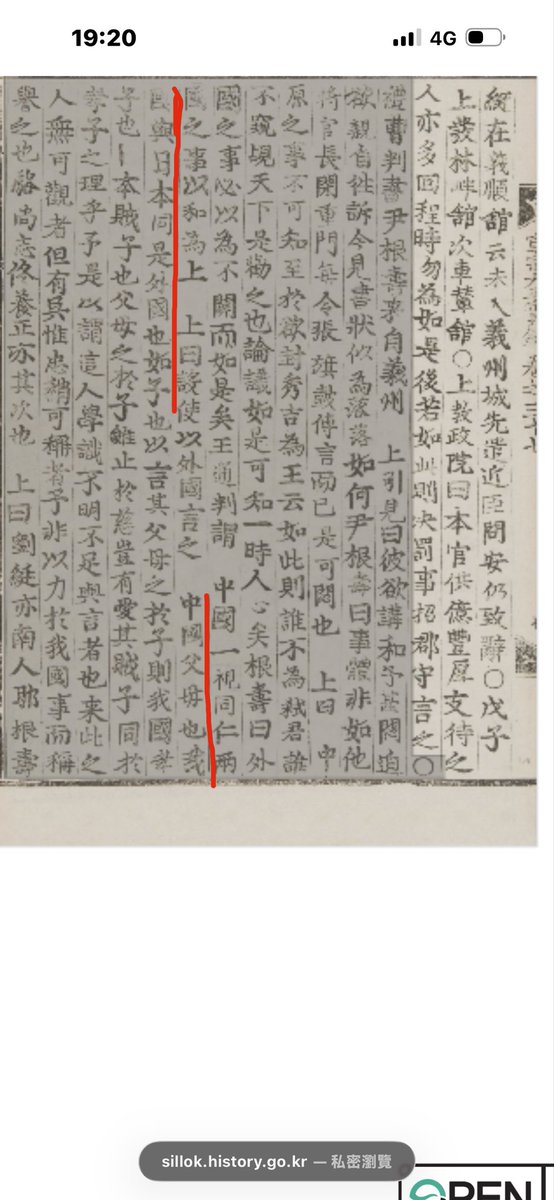 19:20
4G
綎在義順館云未入義州城先遣近臣問安仍致辭○戊子
上發林畔館次車輦館○上敎政院曰本官供億豐厚支待之
人亦多回程時勿爲如是後若如此則決罰事招郡守言之○
禮曹判書尹根壽來自義州 上引見曰彼欲講和予甚悶迫
欲親自往訴今見書狀似爲落落如何尹根壽曰事體非如他
將官長閉重門每令張旗鼓傳言而已是可悶也 上曰 中
原之事不可知至於欲封秀吉為王云如此則誰不為弑君誰
不窺覘天下是勸之也論議如是可知一時人心矣根壽曰外
國之事必以為不關而如是矣王通判謂 中國一視同仁兩
國之事以和為上 上曰設使以外國言之 中國父母也我
國與日本同是外國也如子也以言其父母之於子則我國孝
子也日本賊子也父母之於子雖止於慈豈有愛其賊子同於
孝子之理乎予是以謂這人學識不明不足與言者也来此之
人無可觀者但有吳惟忠稍可稱者予非以力於我國事而稱
譽之也駱尚志佟養正亦其次也 上曰劉綎亦南人耶根壽
sillok.history.go.kr — 私密瀏覽
OPEN